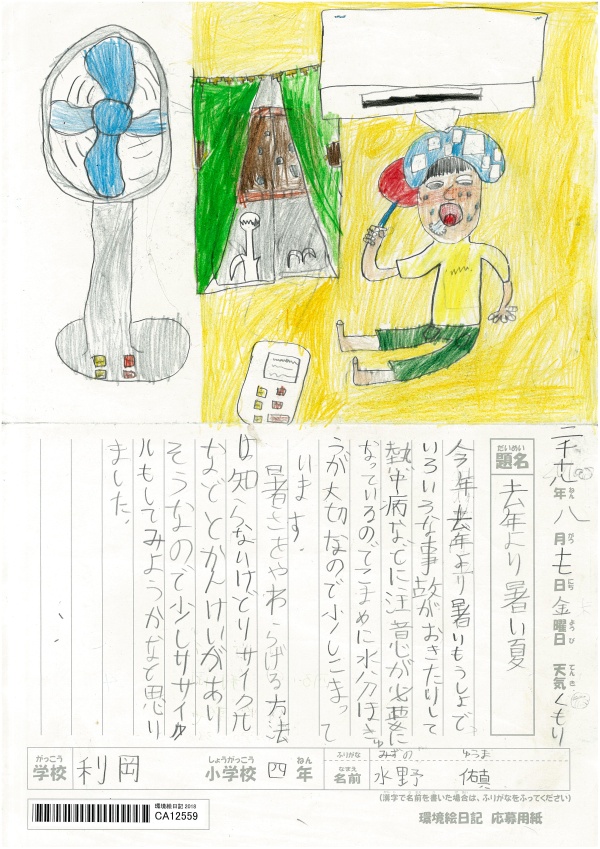 二千十八年八月十七日金曜日 天気くもり
ねん がつ にち ようび てんき
だいめい
題名 去年より暑い夏
今年去年より暑いもうしょで
いろいろな事故がおきたりして
熱中病などに注意が必要に
なっているのでこまめに水分ほきゅ
うが大切なので少しこまって
います。
暑さをやわらげる方法
は知らないけどリサイクル
などとかんけいがあり
そうなので少しリサイク
ルもしてみようかなと思い
ました。
がっこう しょうがっこう ねん ふりがな みずの ゆうま
学校 利岡 小学校 四年 なまえ 名前 水野
(漢字で名前を書いた場合は、ふりがなをふってください)
環境絵日記 2018
CA12559
環境絵日記 応募用紙